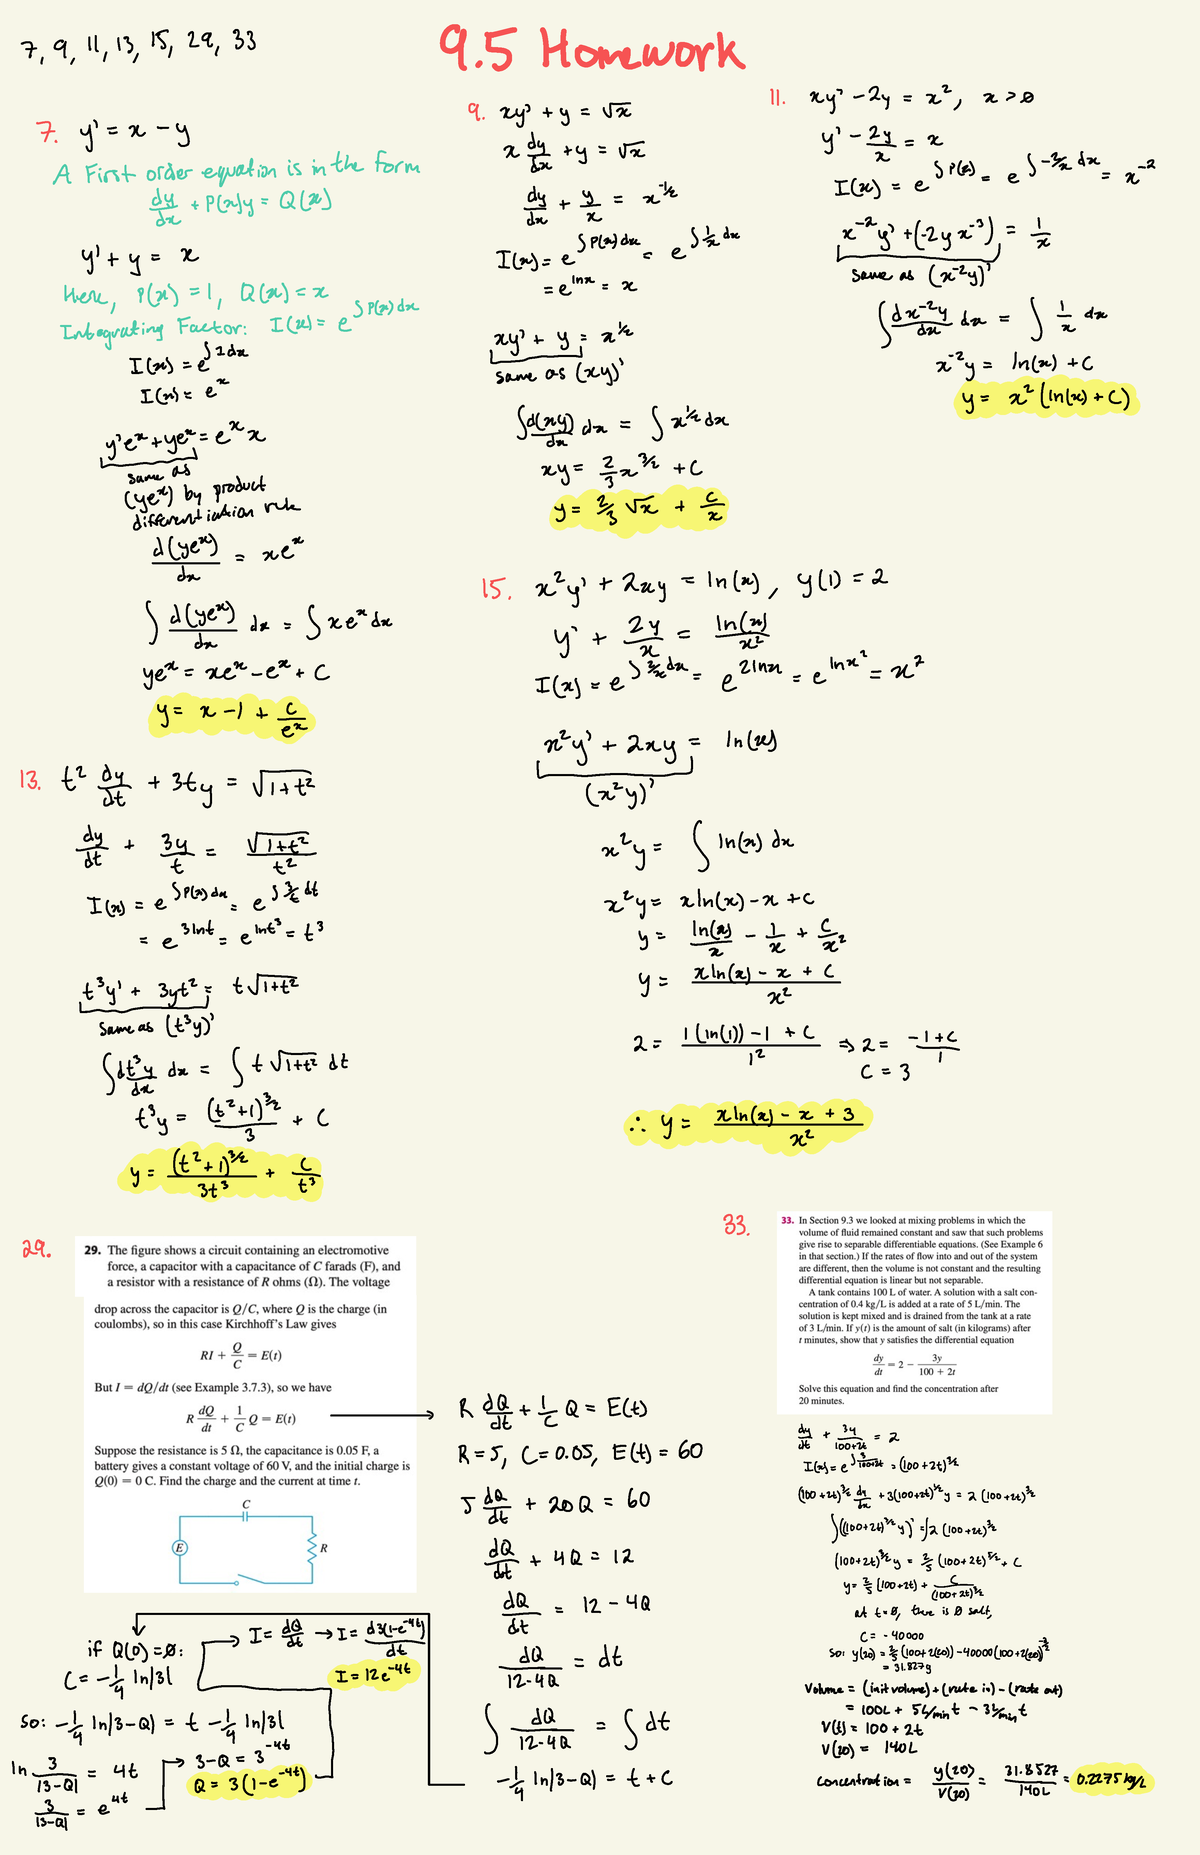 7, 9, 11, 13, 15, 29, 33
9.5 Homework
7. y' = x - y
A First order equation is in the form
dy/dx + P(x)y = Q(x)
y' + y = x
Here, P(x) = 1, Q(x) = x
Integrating Factor: I(x) = e^∫P(x)dx
I(x) = e^∫1dx
I(x) = e^x
y'e^x + ye^x = e^x x
same as
(ye^x) by product
differentiation rule
d(ye^x)/dx = xe^x
∫ d(ye^x)/dx dx = ∫ xe^x dx
ye^x = xe^x - e^x + C
y = x - 1 + C/e^x
9. xy' + y = √x
x dy/dx + y = √x
dy/dx + y/x = x^-1/2
I(x) = e^∫P(x)dx = e^∫1/x dx
= e^lnx = x
xy' + y = x^1/2
same as (xy)'
∫ d(xy)/dx dx = ∫ x^1/2 dx
xy = 2/3 x^3/2 + C
y = 2/3 √x + C/x
11. xy' - 2y = x², x > 0
y' - 2y/x = x
I(x) = e^∫P(x) = e^∫-2/x dx = x^-2
x^-2 y' + (-2yx^-3) = 1/x
same as (x^-2 y)'
∫ dx^-2y/dx dx = ∫ 1/x dx
x^-2 y = ln(x) + C
y = x² (ln(x) + C)
13. t² dy/dt + 3ty = √1+t²
dy/dt + 3y/t = √1+t²/t²
I(x) = e^∫P(x)dx = e^∫3/t dt
= e^3lnt = e^lnt³ = t³
t³y' + 3yt² = t√1+t²
same as (t³y)'
∫ dt³y/dx dx = ∫ t√1+t² dt
t³y = (t²+1)^3/2/3 + C
y = (t²+1)^3/2/3t³ + C/t³
15. x²y' + 2xy = ln(x), y(1) = 2
y' + 2y/x = ln(x)/x²
I(x) = e^∫2/x dx = e^2lnx = e^lnx² = x²
x²y' + 2xy = ln(x)
(x²y)'
x²y = ∫ ln(x) dx
x²y = xln(x) - x + C
y = ln(x)/x - 1/x + C/x²
y = xln(x) - x + C/x²
2 = 1(ln(1)) - 1 + C/1² ⇒ 2 = -1+C/1
C = 3
∴ y = xln(x) - x + 3/x²
29.
29. The figure shows a circuit containing an electromotive
force, a capacitor with a capacitance of C farads (F), and
a resistor with a resistance of R ohms (Ω). The voltage
drop across the capacitor is Q/C, where Q is the charge (in
coulombs), so in this case Kirchhoff's Law gives
RI + Q/C = E(t)
But I = dQ/dt (see Example 3.7.3), so we have
R dQ/dt + 1/C Q = E(t)
Suppose the resistance is 5 Ω, the capacitance is 0.05 F, a
battery gives a constant voltage of 60 V, and the initial charge is
Q(0) = 0 C. Find the charge and the current at time t.
C
E
R
R dQ/dt + 1/C Q = E(t)
R = 5, C = 0.05, E(t) = 60
5 dQ/dt + 20Q = 60
dQ/dt + 4Q = 12
dQ/dt = 12 - 4Q
dQ/12-4Q = dt
∫ dQ/12-4Q = ∫ dt
-1/4 ln|3-Q| = t + C
if Q(0) = 0:
C = -1/4 ln|3|
so: -1/4 ln|3-Q| = t - 1/4 ln|3|
ln 3/|3-Q| = 4t
3/|3-Q| = e^4t
3-Q = 3^-4t
Q = 3(1-e^-4t)
I = dQ/dt → I = d3(1-e^-4t)/dt
I = 12e^-4t
33.
33. In Section 9.3 we looked at mixing problems in which the
volume of fluid remained constant and saw that such problems
give rise to separable differentiable equations. (See Example 6
in that section.) If the rates of flow into and out of the system
are different, then the volume is not constant and the resulting
differential equation is linear but not separable.
A tank contains 100 L of water. A solution with a salt con-
centration of 0.4 kg/L is added at a rate of 5 L/min. The
solution is kept mixed and is drained from the tank at a rate
of 3 L/min. If y(t) is the amount of salt (in kilograms) after
t minutes, show that y satisfies the differential equation
dy/dt = 2 - 3y/100 + 2t
Solve this equation and find the concentration after
20 minutes.
dy/dt + 3y/100+2t = 2
I(x) = e^∫3/100+2t = (100+2t)^3/2
(100+2t)^3/2 dy/dx + 3(100+2t)^1/2 y = 2(100+2t)^3/2
∫((100+2t)^3/2 y)' = ∫2(100+2t)^3/2
(100+2t)^3/2 y = 2/5 (100+2t)^5/2 + C
y = 2/5 (100+2t) + C/(100+2t)^3/2
at t=0, there is 0 salt,
C = -40000
So: y(20) = 2/5 (100+2(20)) - 40000(100+2(20))^-3/2
= 31.8279
Volume = (init volume) + (rate in) - (rate out)
= 100L + 5L/min t - 3L/min t
V(t) = 100 + 2t
V(20) = 140L
Concentration = y(20)/V(20) = 31.8527/140L = 0.2275 kg/L